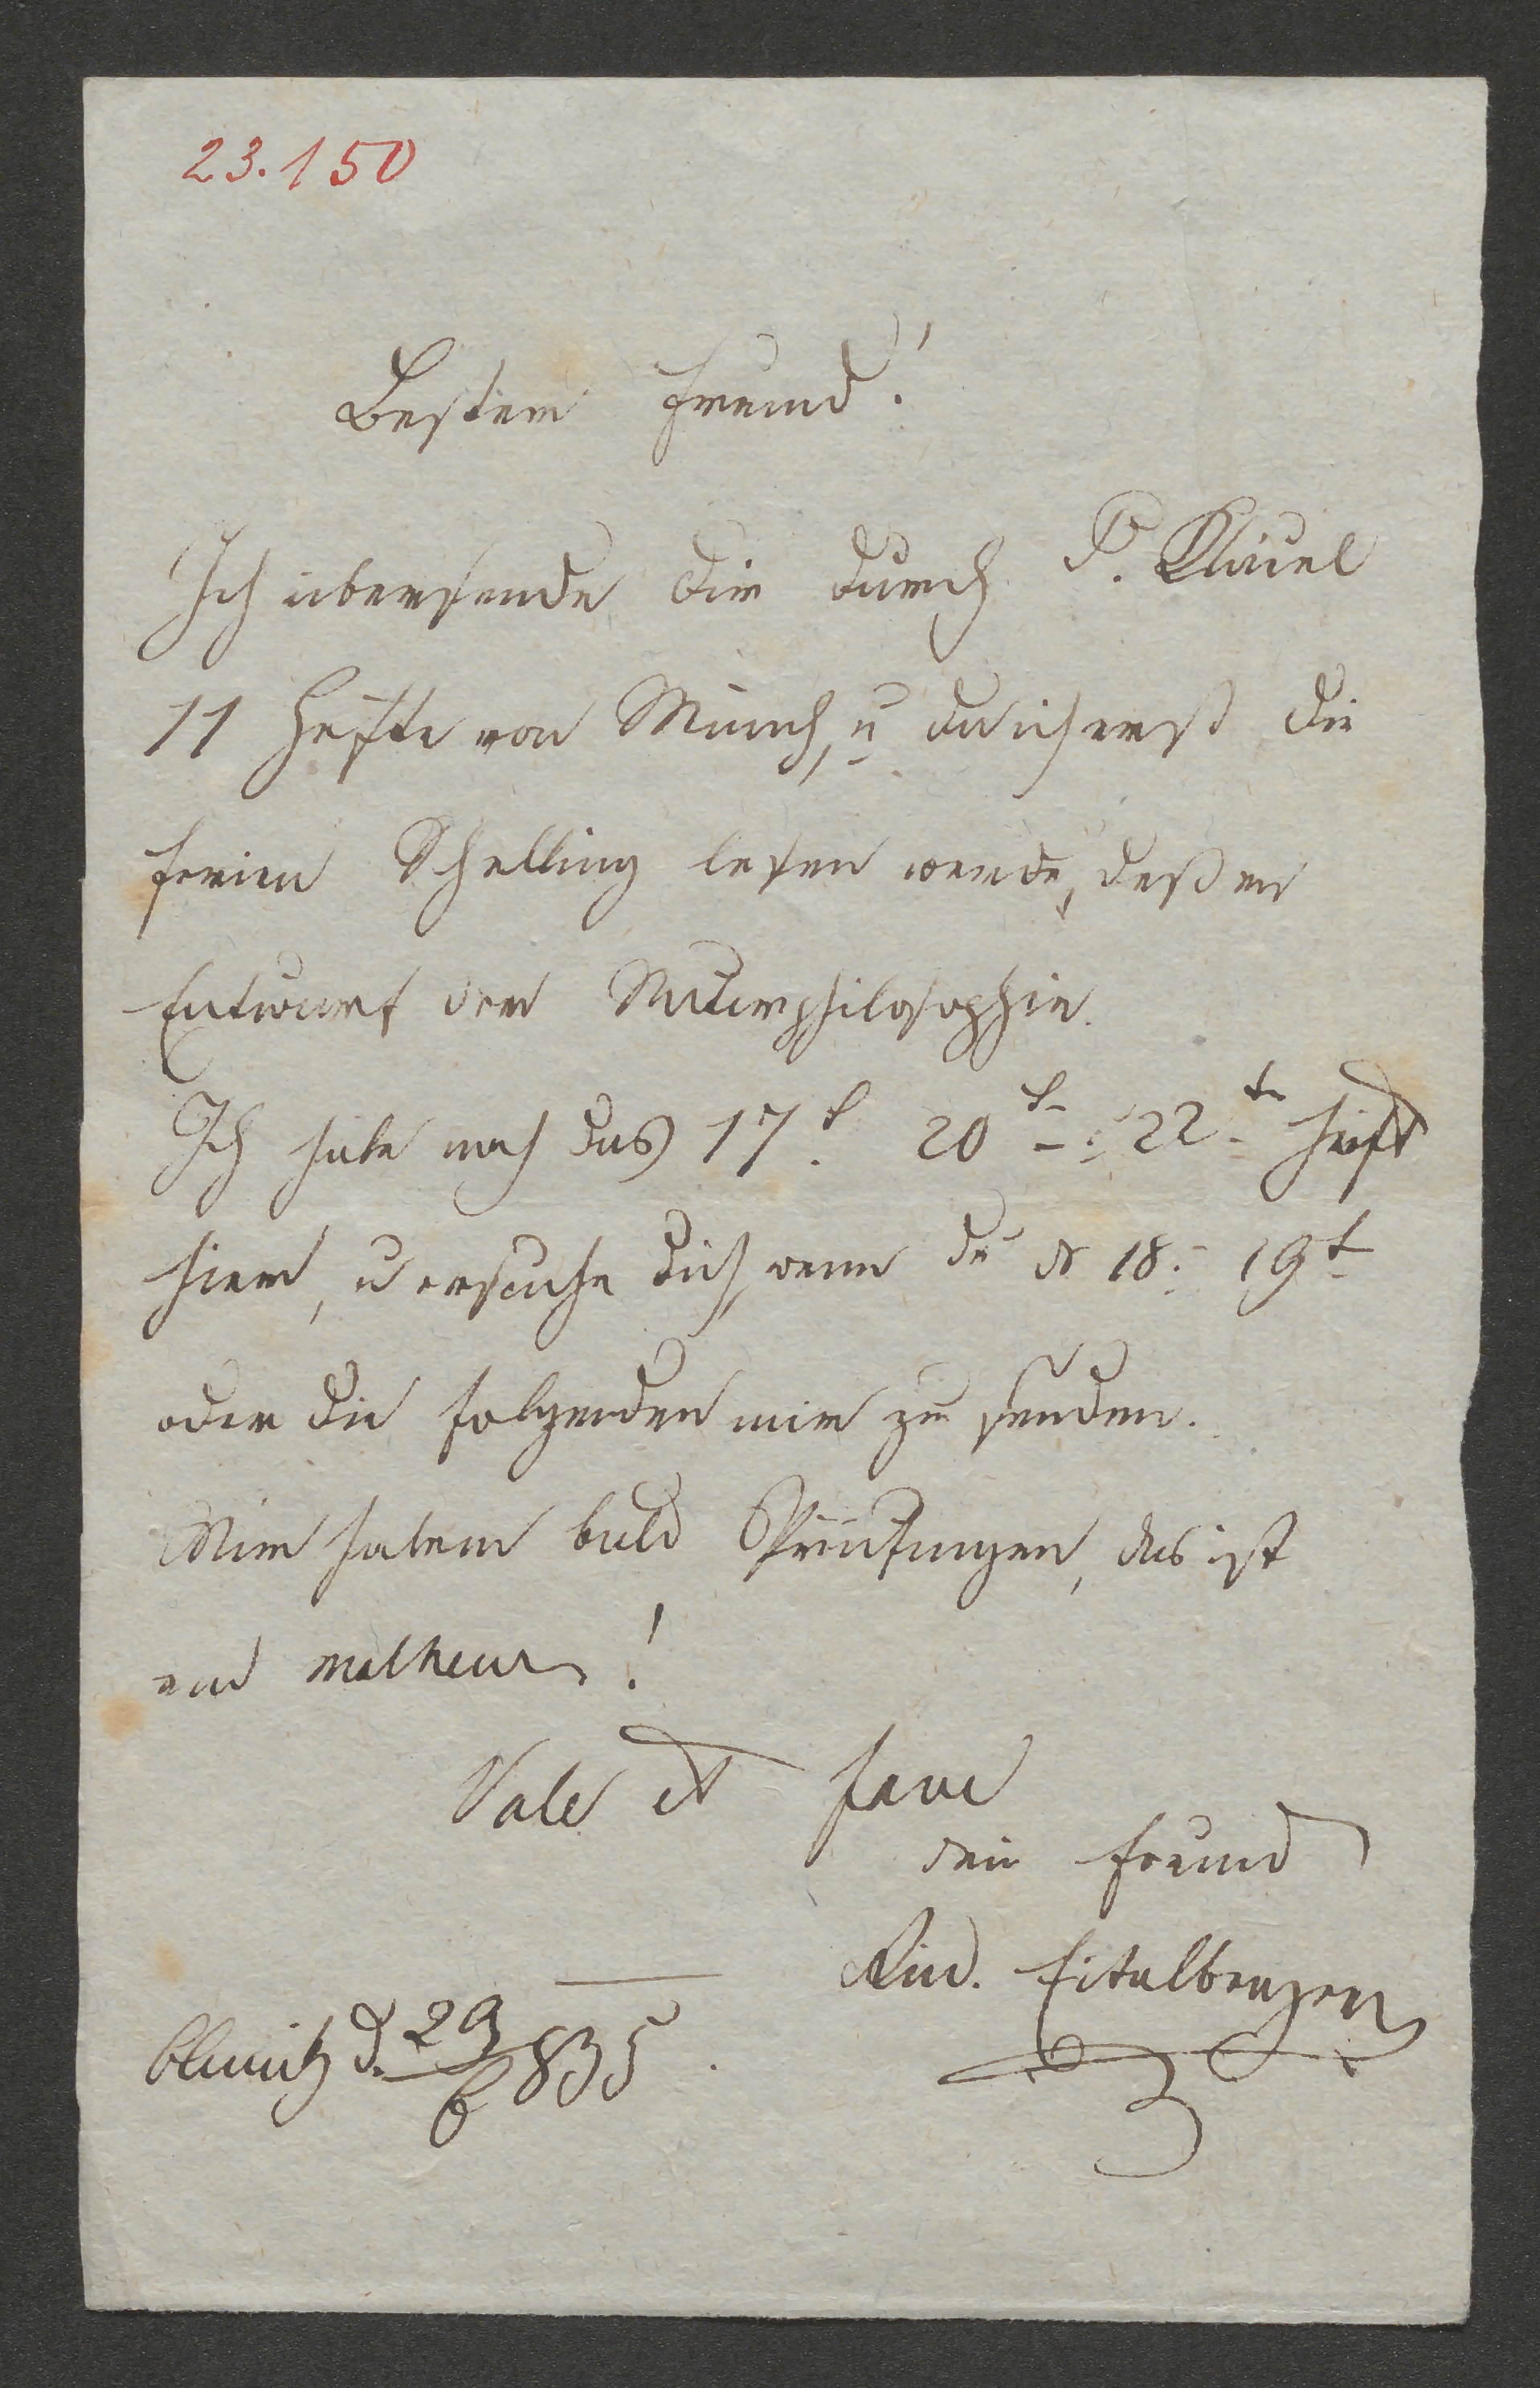 23.150
Bester Freund!
Ich übersende dir durch P. Klauel
11 Hefte von Münch, u da ich erst die
Ferien Schelling lesen werde, deßen
Entwurf der Naturphilosophie.
Ich habe noch das 17t 20t 22te Heft
hier, u ersuche dich, wenn du d 18. 19t
oder die folgenden mir zu senden.
Wir haben bald Prüfungen, das ist
ein malheur!
Vale et fave
dein Freund
Rud. Eitelberger
Olmütz d. 29/6 835.